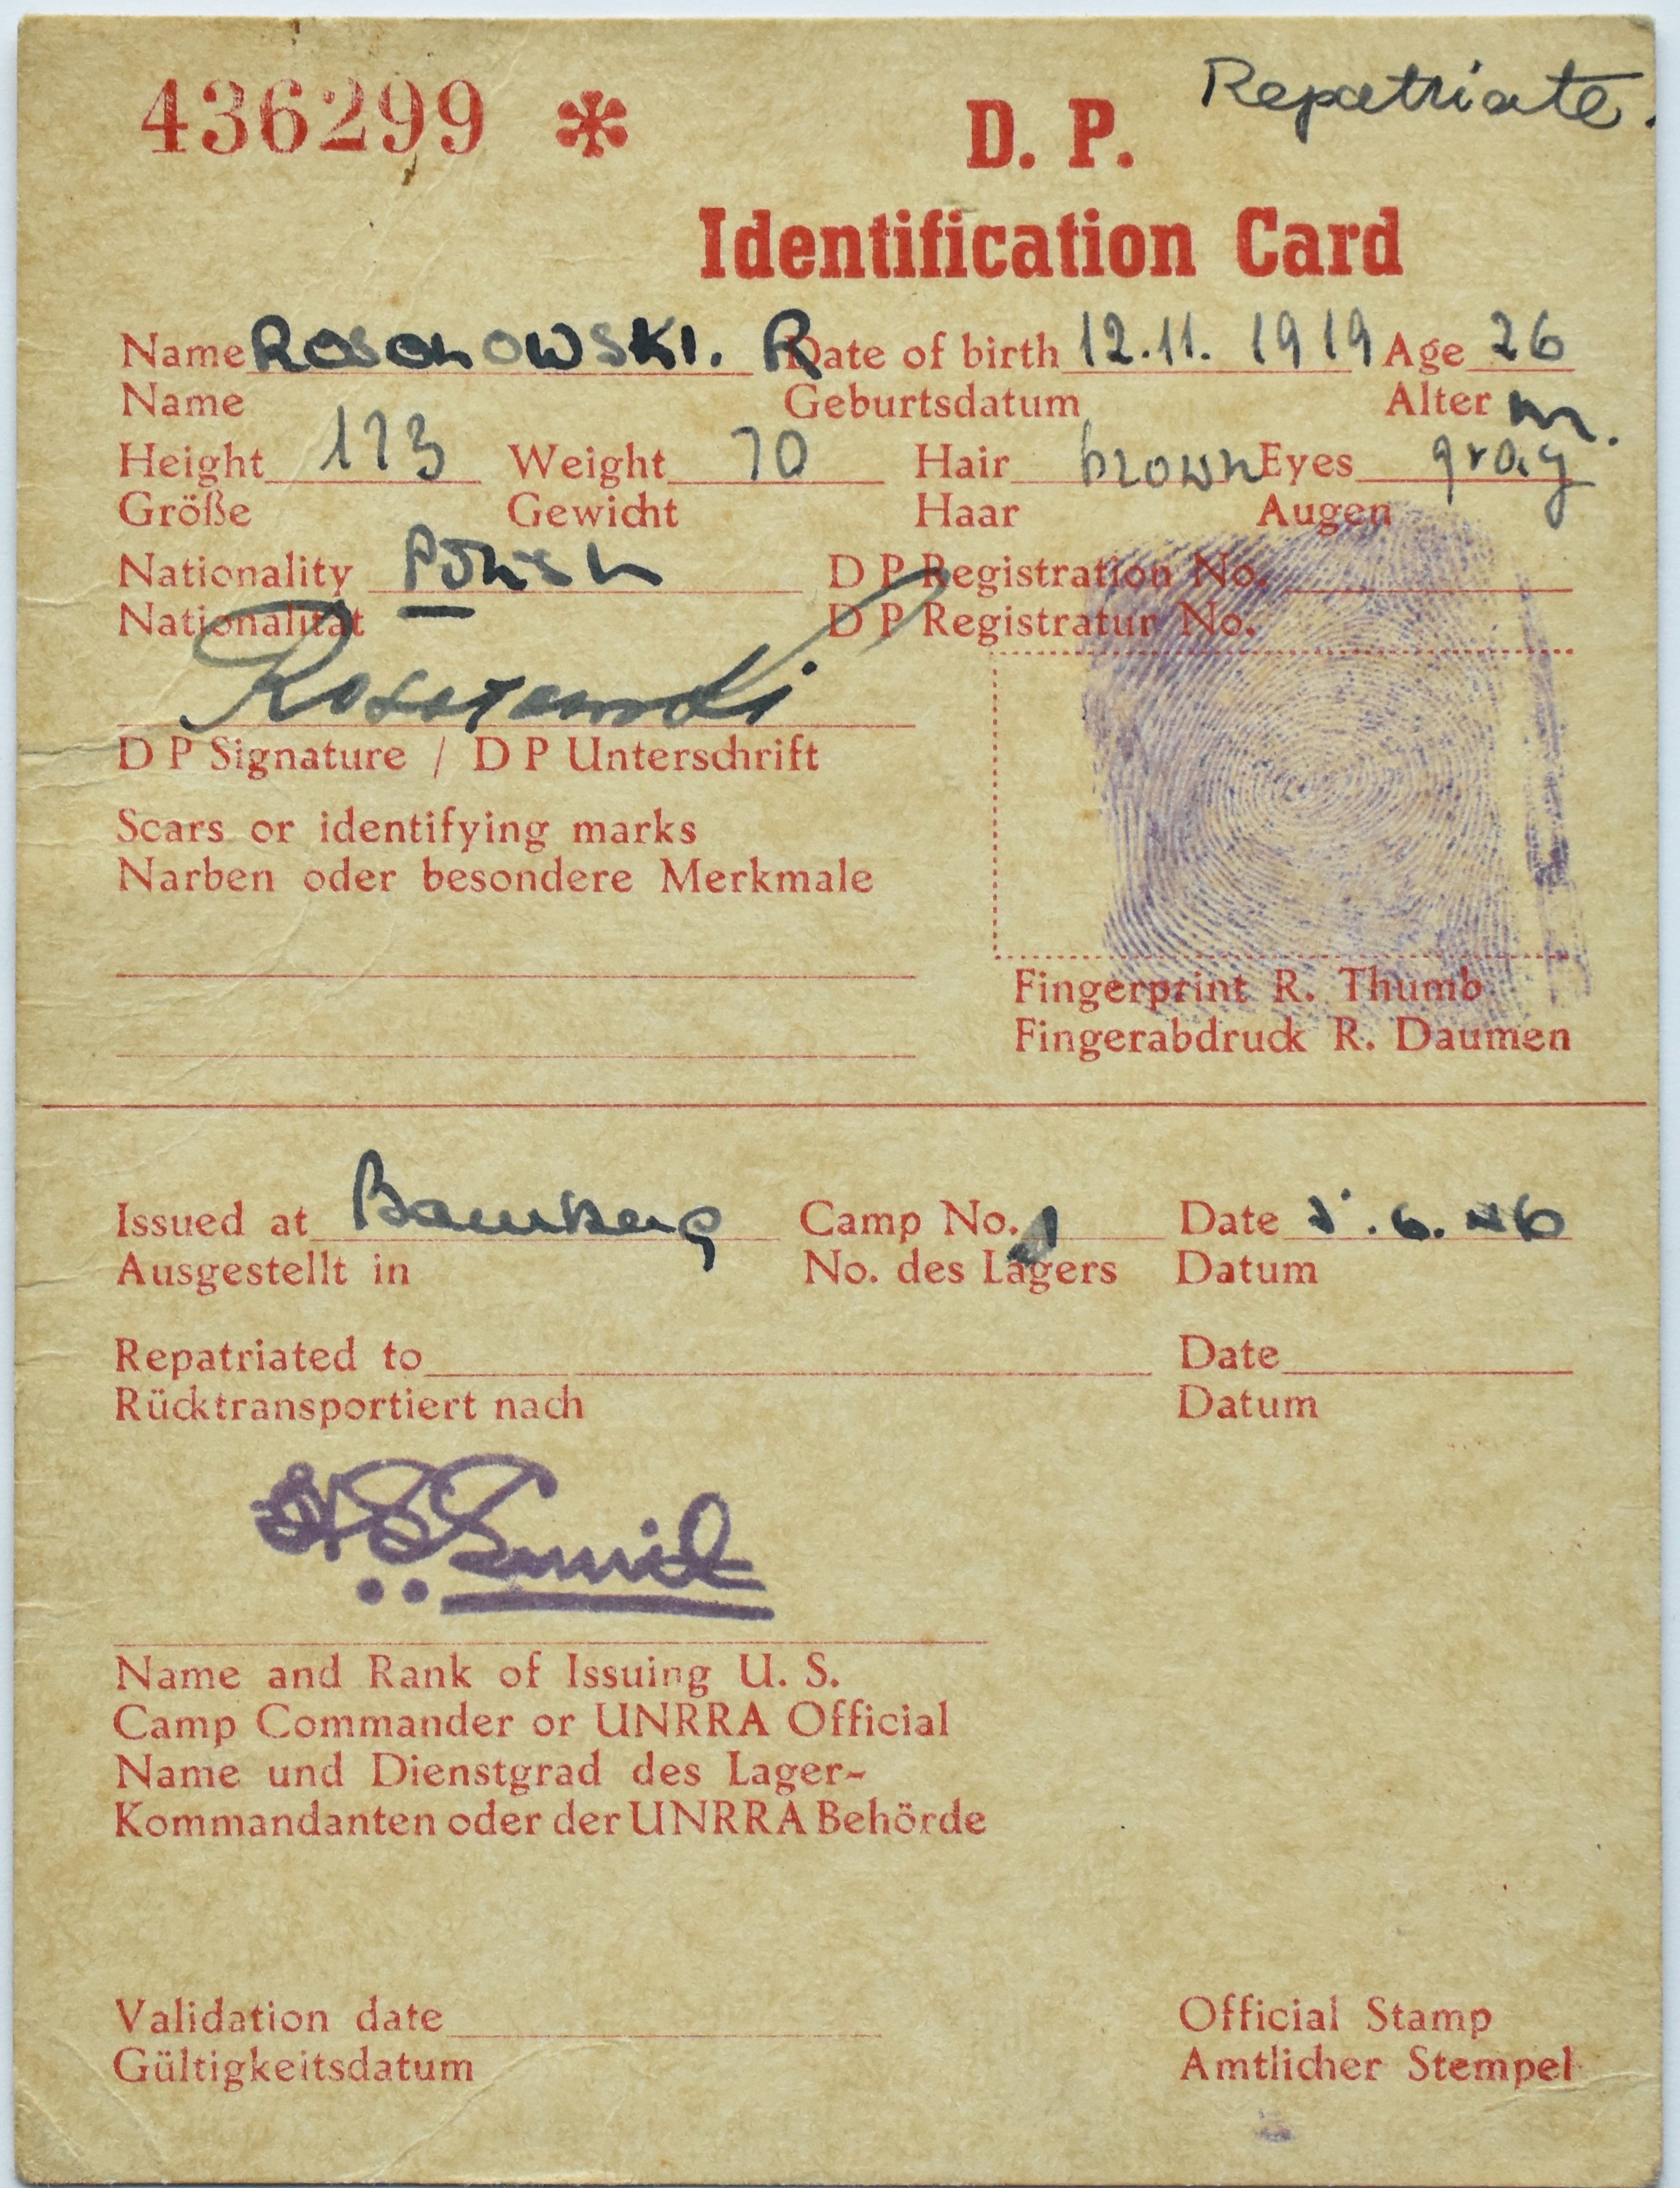 436299 * D. P. Repatriate.
Identification Card
Name ROSOLOWSKI. R Date of birth 12.11. 1919 Age 26
Name Geburtsdatum Alter m.
Height 173 Weight 70 Hair brown Eyes gray
Größe Gewicht Haar Augen
Nationality Polish D P Registration No.
Nationalität D P Registratur No.
D P Signature / D P Unterschrift
Scars or identifying marks
Narben oder besondere Merkmale
Fingerprint R. Thumb
Fingerabdruck R. Daumen
Issued at Bamberg Camp No. 1 Date 5.6.46
Ausgestellt in No. des Lagers Datum
Repatriated to Date
Rücktransportiert nach Datum
Name and Rank of Issuing U. S.
Camp Commander or UNRRA Official
Name und Dienstgrad des Lager-
Kommandanten oder der UNRRA Behörde
Validation date Official Stamp
Gültigkeitsdatum Amtlicher Stempel